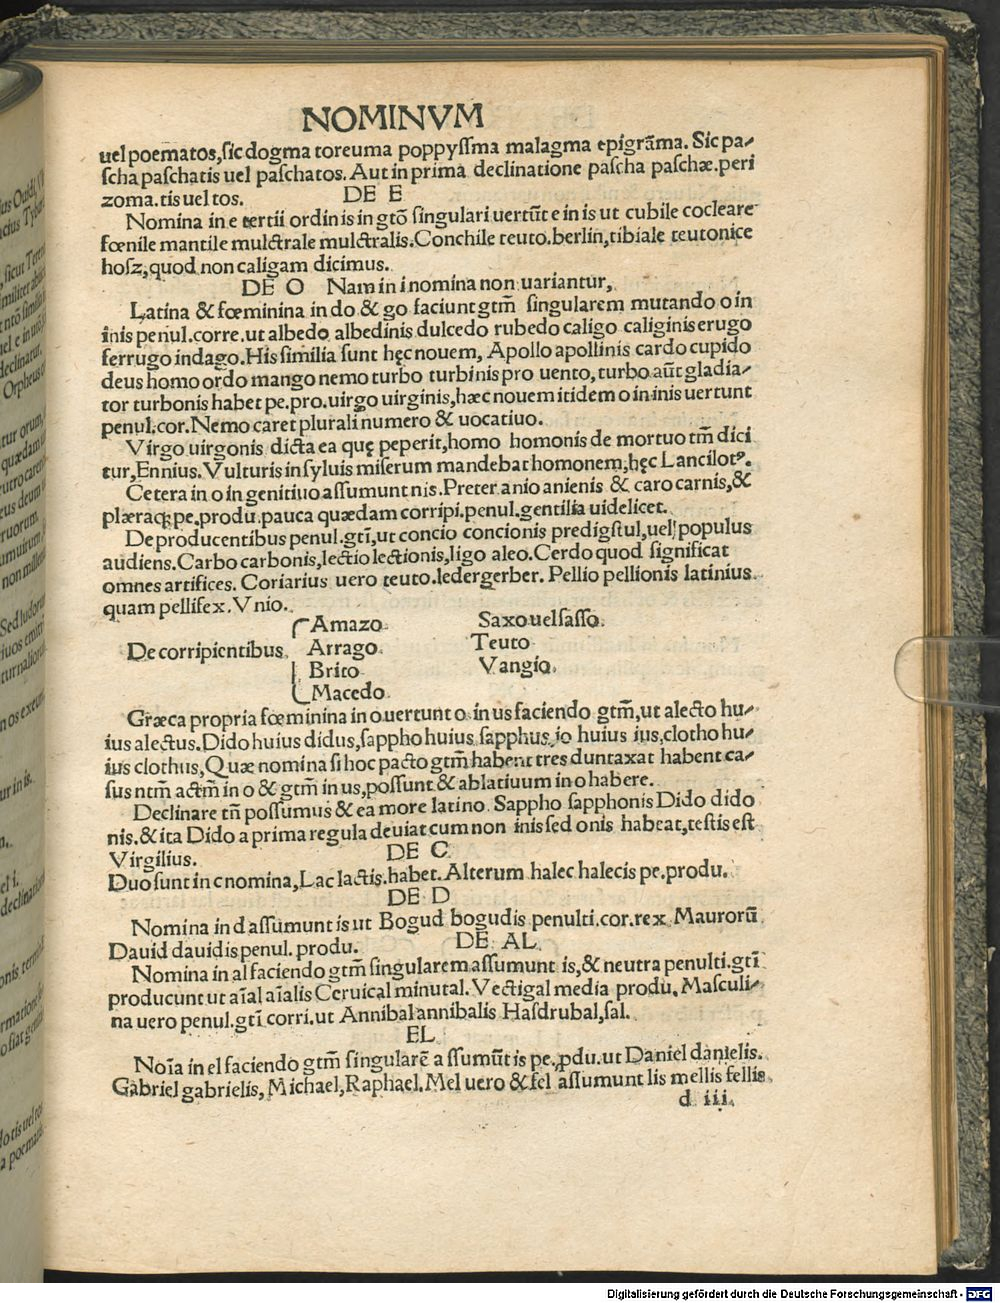 NOMINVM
uel poematos,sic dogma toreuma poppyſſma malagma epigrāma. Sic pa⸗
ſcha paſchatis uel paſchatos. Aut in prima declinatione paſcha paſchæ.peri
zoma.tis uel tos. DE E
Nomina in e tertii ordinis in gtō ſingulari uertūt e in is ut cubile cocleare
fœnile mantile mulctrale mulctralis.Conchile teuto.berlin,tibiale teutonice
hoſz,quod non caligam dicimus.
DE O Nam in i nomina non uariantur,
Latina & fœminina in do & go faciunt gtm̄ ſingularem mutando o in
inis penul.corre.ut albedo albedinis dulcedo rubedo caligo caliginis erugo
ferrugo indago.His ſimilia ſunt hęc nouem, Apollo apollinis cardo cupido
deus homo ordo mango nemo turbo turbinis pro uento,turbo aūt gladia⸗
tor turbonis habet pe.pro.uirgo uirginis,hæc nouem itidem o in inis uertunt
penul.cor.Nemo caret plurali numero & uocatiuo.
Virgo uirgonis dicta ea quę peperit,homo homonis de mortuo tm̄ dici
tur,Ennius. Vulturis in ſyluis miſerum mandebat homonem,hęc Lancilotꝰ.
Cetera in o in genitiuo aſſumunt nis.Preter anio anienis & caro carnis,&
plæraqꝫ pe.produ.pauca quædam corripi.penul.gentilia uidelicet.
De producentibus penul.gtī,ut concio concionis predigſtul,uel populus
audiens.Carbo carbonis,lectio lectionis,ligo aleo.Cerdo quod ſignificat
omnes artifices. Coriarius uero teuto.ledergerber. Pellio pellionis latinius
quam pellifex.Vnio.
De corripientibus
Amazo
Arrago
Brito
Macedo
Saxo uel ſaſſo
Teuto
Vangio
Græca propria fœminina in o uertunt o in us faciendo gtm̄,ut alecto hu⸗
ius alectus.Dido huius didus,ſappho huius ſapphus,io huius ius,clotho hu⸗
ius clothus,Quæ nomina ſi hoc pacto gtm̄ habent tres duntaxat habent ca⸗
ſus ntm̄ actm̄ in o & gtm̄ in us,poſſunt & ablatiuum in o habere.
Declinare tn̄ poſſumus & ea more latino Sappho ſapphonis Dido dido
nis.& ita Dido a prima regula deuiat cum non inis ſed onis habeat,teſtis eſt
Virgilius. DE C
Duo ſunt in c nomina,Lac lactis.habet.Alterum halec halecis pe.produ.
DE D
Nomina in d aſſumunt is ut Bogud bogudis penulti.cor.rex Maurorū
Dauid dauidis penul. produ. DE AL
Nomina in al faciendo gtm̄ ſingularem aſſumunt is,& neutra penulti.gtī
producunt ut aīal aīalis Ceruical minutal.Vectigal media produ. Maſculi⸗
na uero penul.gtī corri.ut Annibal annibalis Haſdrubal,ſal.
EL
Noīa in el faciendo gtm̄ ſingularē aſſumūt is pe.ꝓdu.ut Daniel danielis.
Gabriel gabrielis, Michael,Raphael.Mel uero & fel aſſumunt lis mellis fellis
d iii.
Digitalisierung gefördert durch die Deutsche Forschungsgemeinschaft - DFG